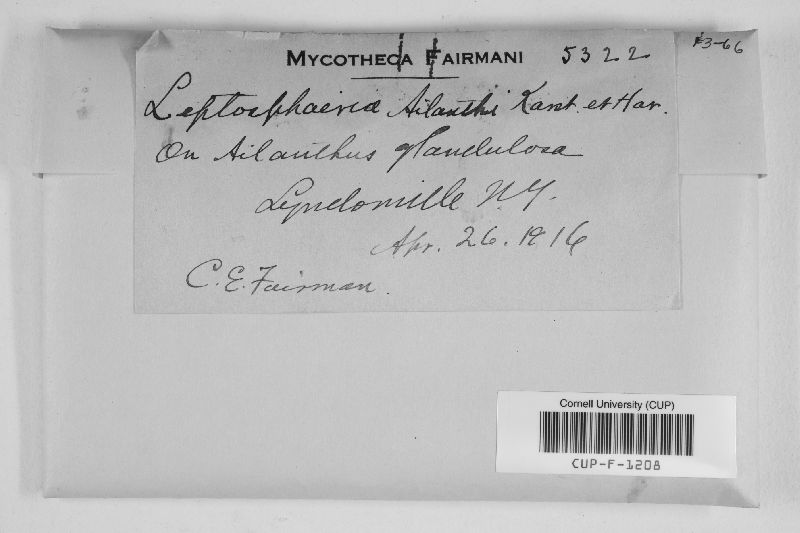 MYCOTHECA FAIRMANI 5322
F3-66
Leptosphaeria Ailanthi Karst. et Har.
On Ailanthus glandulosa
Lyndonville N.Y.
Apr. 26. 1916
C. E. Fairman.
Cornell University (CUP)
CUP-F-1208